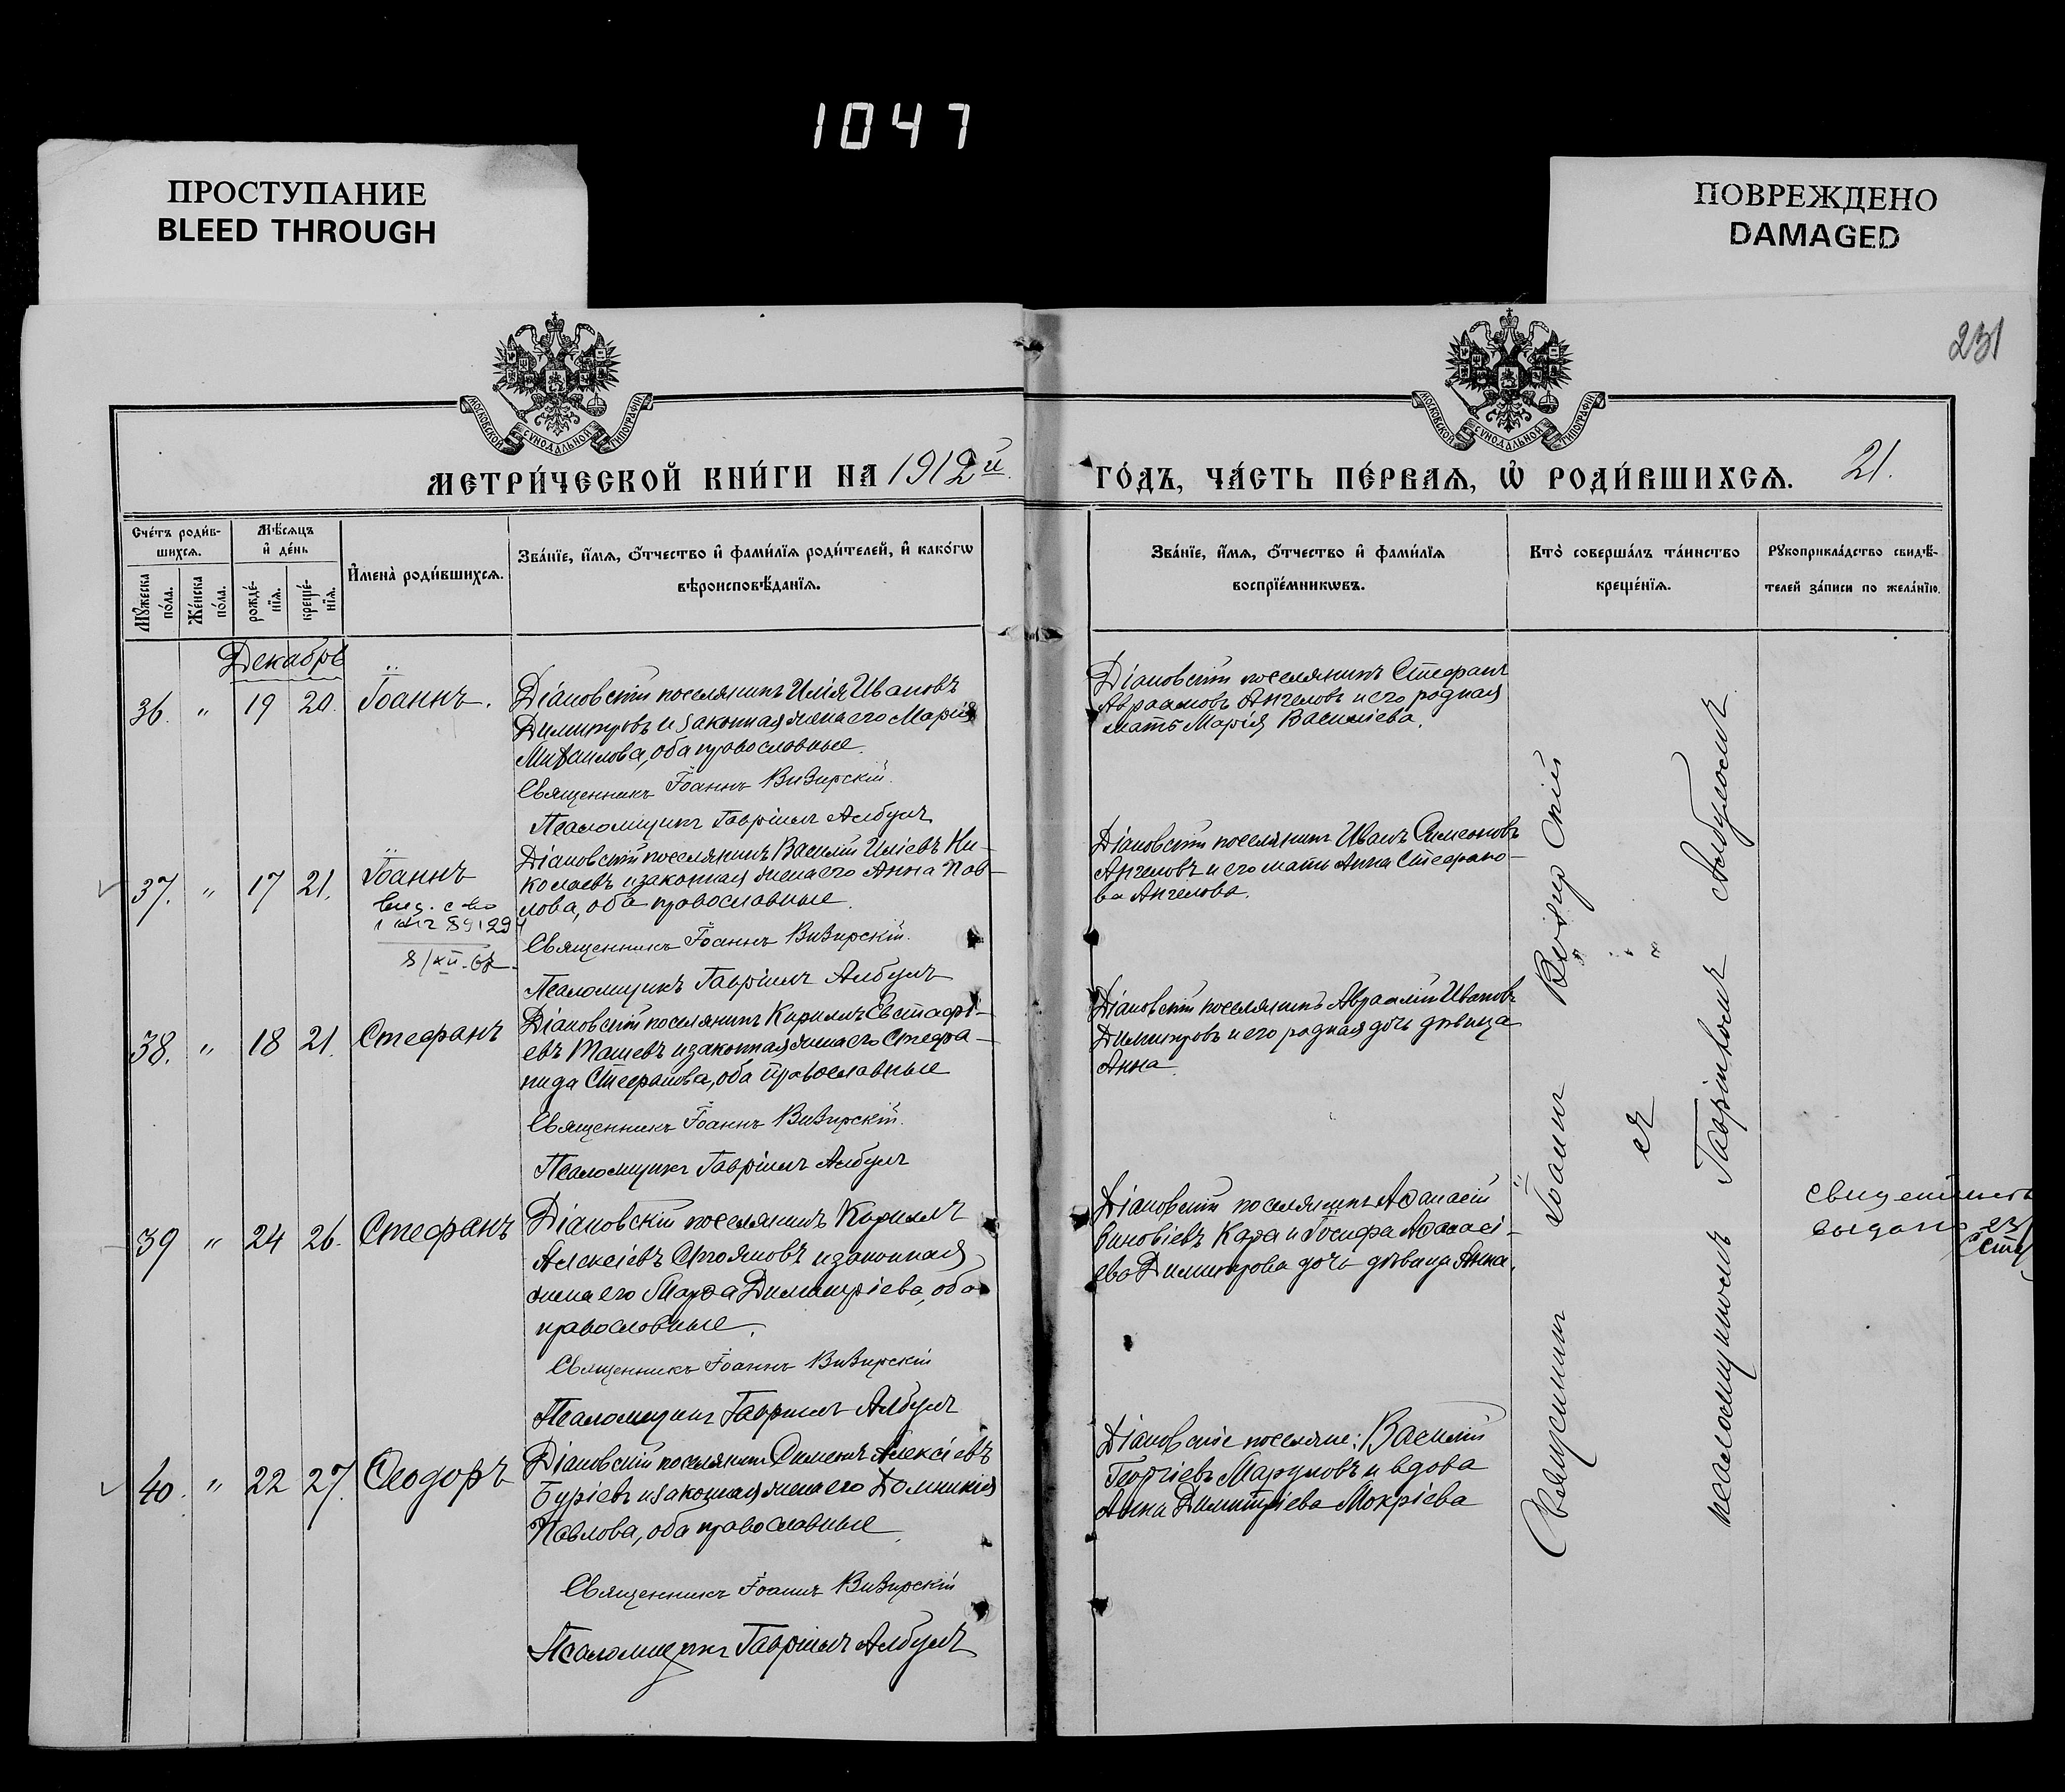 1047
ПРОСТУПАНИЕ
BLEED THROUGH
ПОВРЕЖДЕНО
DAMAGED
231
МОСКОВСКОЙ СѴНОДАЛЬНОЙ ТИПОГРАФІИ
МОСКОВСКОЙ СѴНОДАЛЬНОЙ ТИПОГРАФІИ
МЕТРИ́ЧЕСКОЙ КНИ́ГИ НА 1912й.
ГО́ДЪ, ЧА́СТЬ ПЕ́РВАѦ, Ѡ҆ РОДИ́ВШИХСѦ. 21.
Сче́тъ роди́в-
шихсѧ.
Мꙋжеска по́ла.
Же́нска по́ла.
Мѣ́сѧцъ
и҆ де́нь
рожде́-
нїѧ.
креще́-
нїѧ.
И҆мена̀ роди́вшихсѧ.
Зва́нїе, и҆́мѧ, ѻ҆́тчество и҆ фами́лїѧ роди́телей, и҆ како́гѡ
вѣроисповѣ́данїѧ.
Зва́нїе, и҆́мѧ, ѻ҆́тчество и҆ фами́лїѧ
воспрїе́мникѡвъ.
Кто̀ соверша́лъ та́инство
креще́нїѧ.
Рꙋкоприкла́дство свидѣ́-
телей за́писи по жела́нїю.
Декабрь
36. " 19 20. Іоаннъ.
Діановскій поселянинъ Илія Ивановъ
Димитровъ и законная жена его Марія
Михаилова, оба православные.
Священникъ Іоаннъ Визирскій.
Псаломщикъ Гавріилъ Албулъ
Діановскій поселянинъ Стефанъ
Авраамовъ Ангеловъ и его родная
мать Марія Василіева.
37. " 17 21. Іоаннъ
8/XII-
Діановскій поселянинъ Василій Иліевъ Ни-
колаевъ и законная жена его Анна Пав-
лова, оба православные.
Священникъ Іоаннъ Визирскій.
Псаломщикъ Гавріилъ Албулъ
Діановскій поселянинъ Иванъ Симеоновъ
Ангеловъ и его мать Анна Стефано-
ва Ангелова.
38. " 18 21. Стефанъ
Діановскій поселянинъ Кириллъ Евстафі-
евъ Ташевъ и законная жена его Стефа-
нида Стефанова, оба православные
Священникъ Іоаннъ Визирскій.
Псаломщикъ Гавріилъ Албулъ
Діановскій поселянинъ Ивановъ
Димитровъ и его родная дочь дѣвица
Анна.
39 " 24 26. Стефанъ
Діановскій поселянинъ Кириллъ
Алексіевъ Стояновъ и законная
жена его Марѳа Димитріева, оба
православные.
Священникъ Іоаннъ Визирскій
Псаломщикъ Гавріилъ Албулъ
Діановскій поселянинъ Аѳанасій
Зиновіевъ Кара и Іосифа Аѳанасі-
ева Димитрова дочь дѣвица Анна.
40. " 22 27. Ѳеодоръ
Діановскій поселянинъ Симеонъ Алексіевъ
Буріевъ и законная жена его Домникія
Павлова, оба православные.
Священникъ Іоаннъ Визирскій
Псаломщикъ Гавріилъ Албулъ
Діановскіе поселяне: Василій
Георгіевъ Маруновъ и вдова
Анна Димитріева Мокріева
Священникъ Іоаннъ Визирскій
съ
псаломщикомъ Гавріиломъ Албуломъ